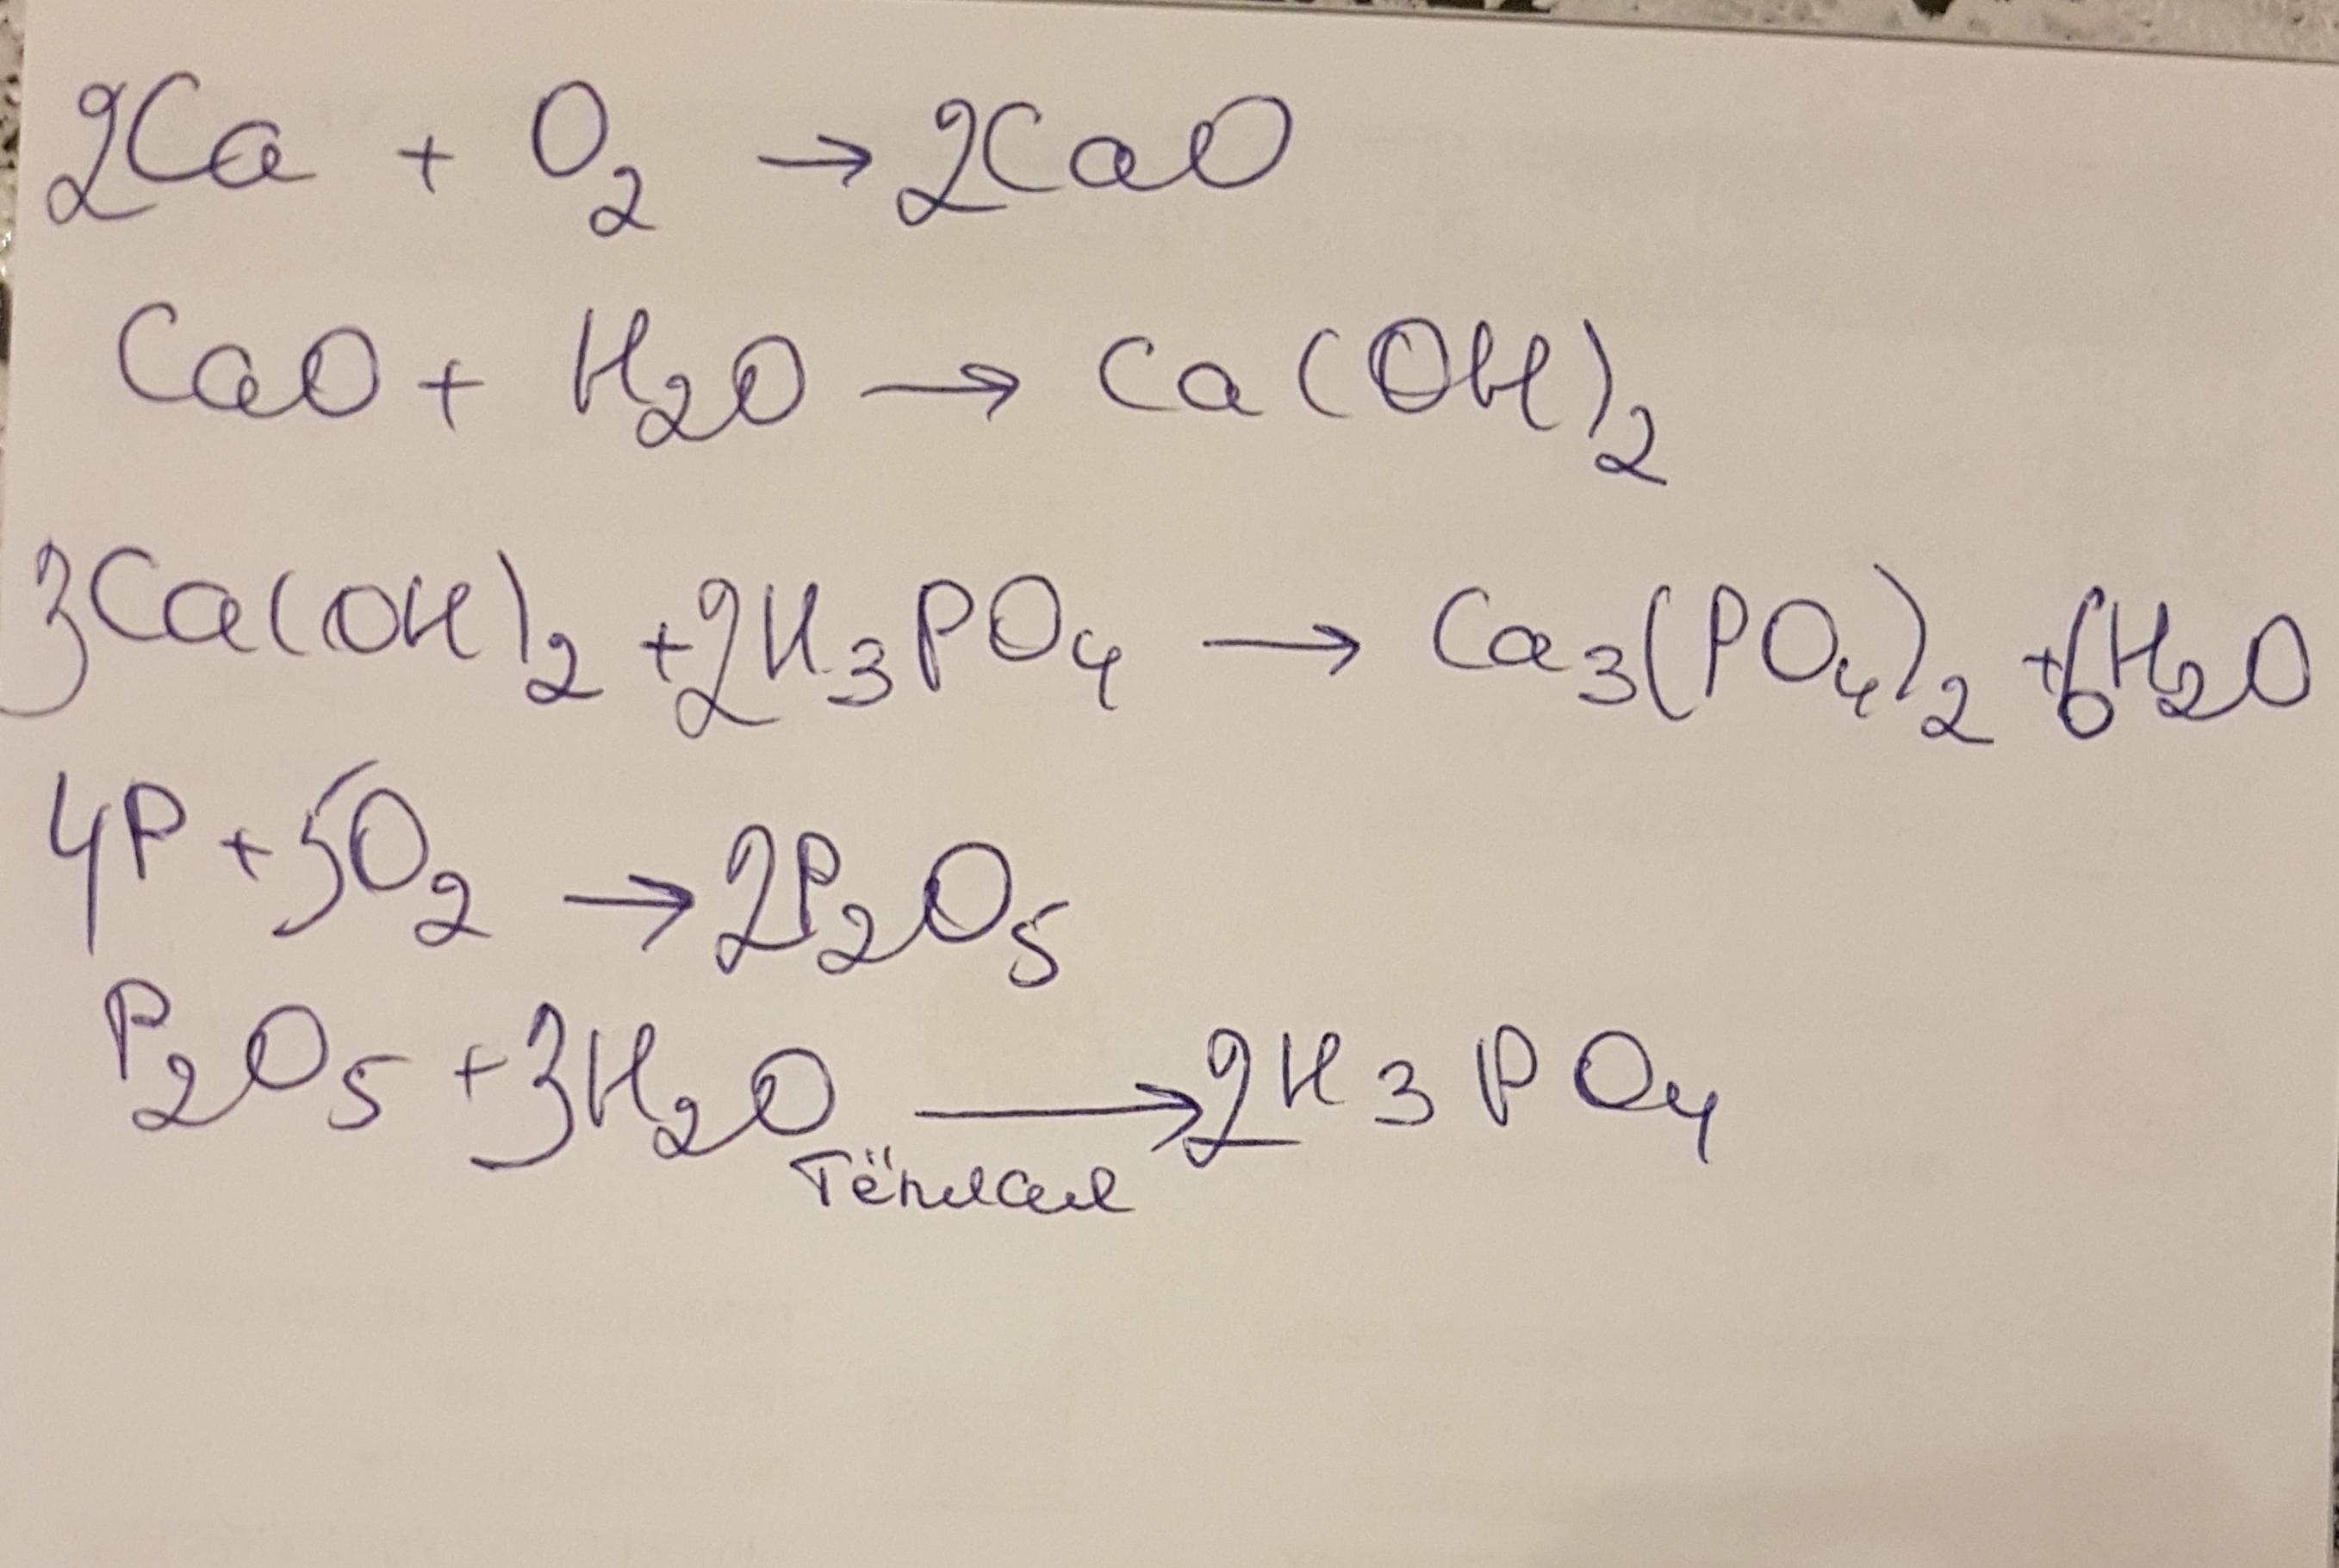 2Ca + O₂ → 2CaO
CaO + H₂O → Ca(OH)₂
3Ca(OH)₂ + 2H₃PO₄ → Ca₃(PO₄)₂ + 6H₂O
4P + 5O₂ → 2P₂O₅
P₂O₅ + 3H₂O → 2H₃PO₄
Тёплая